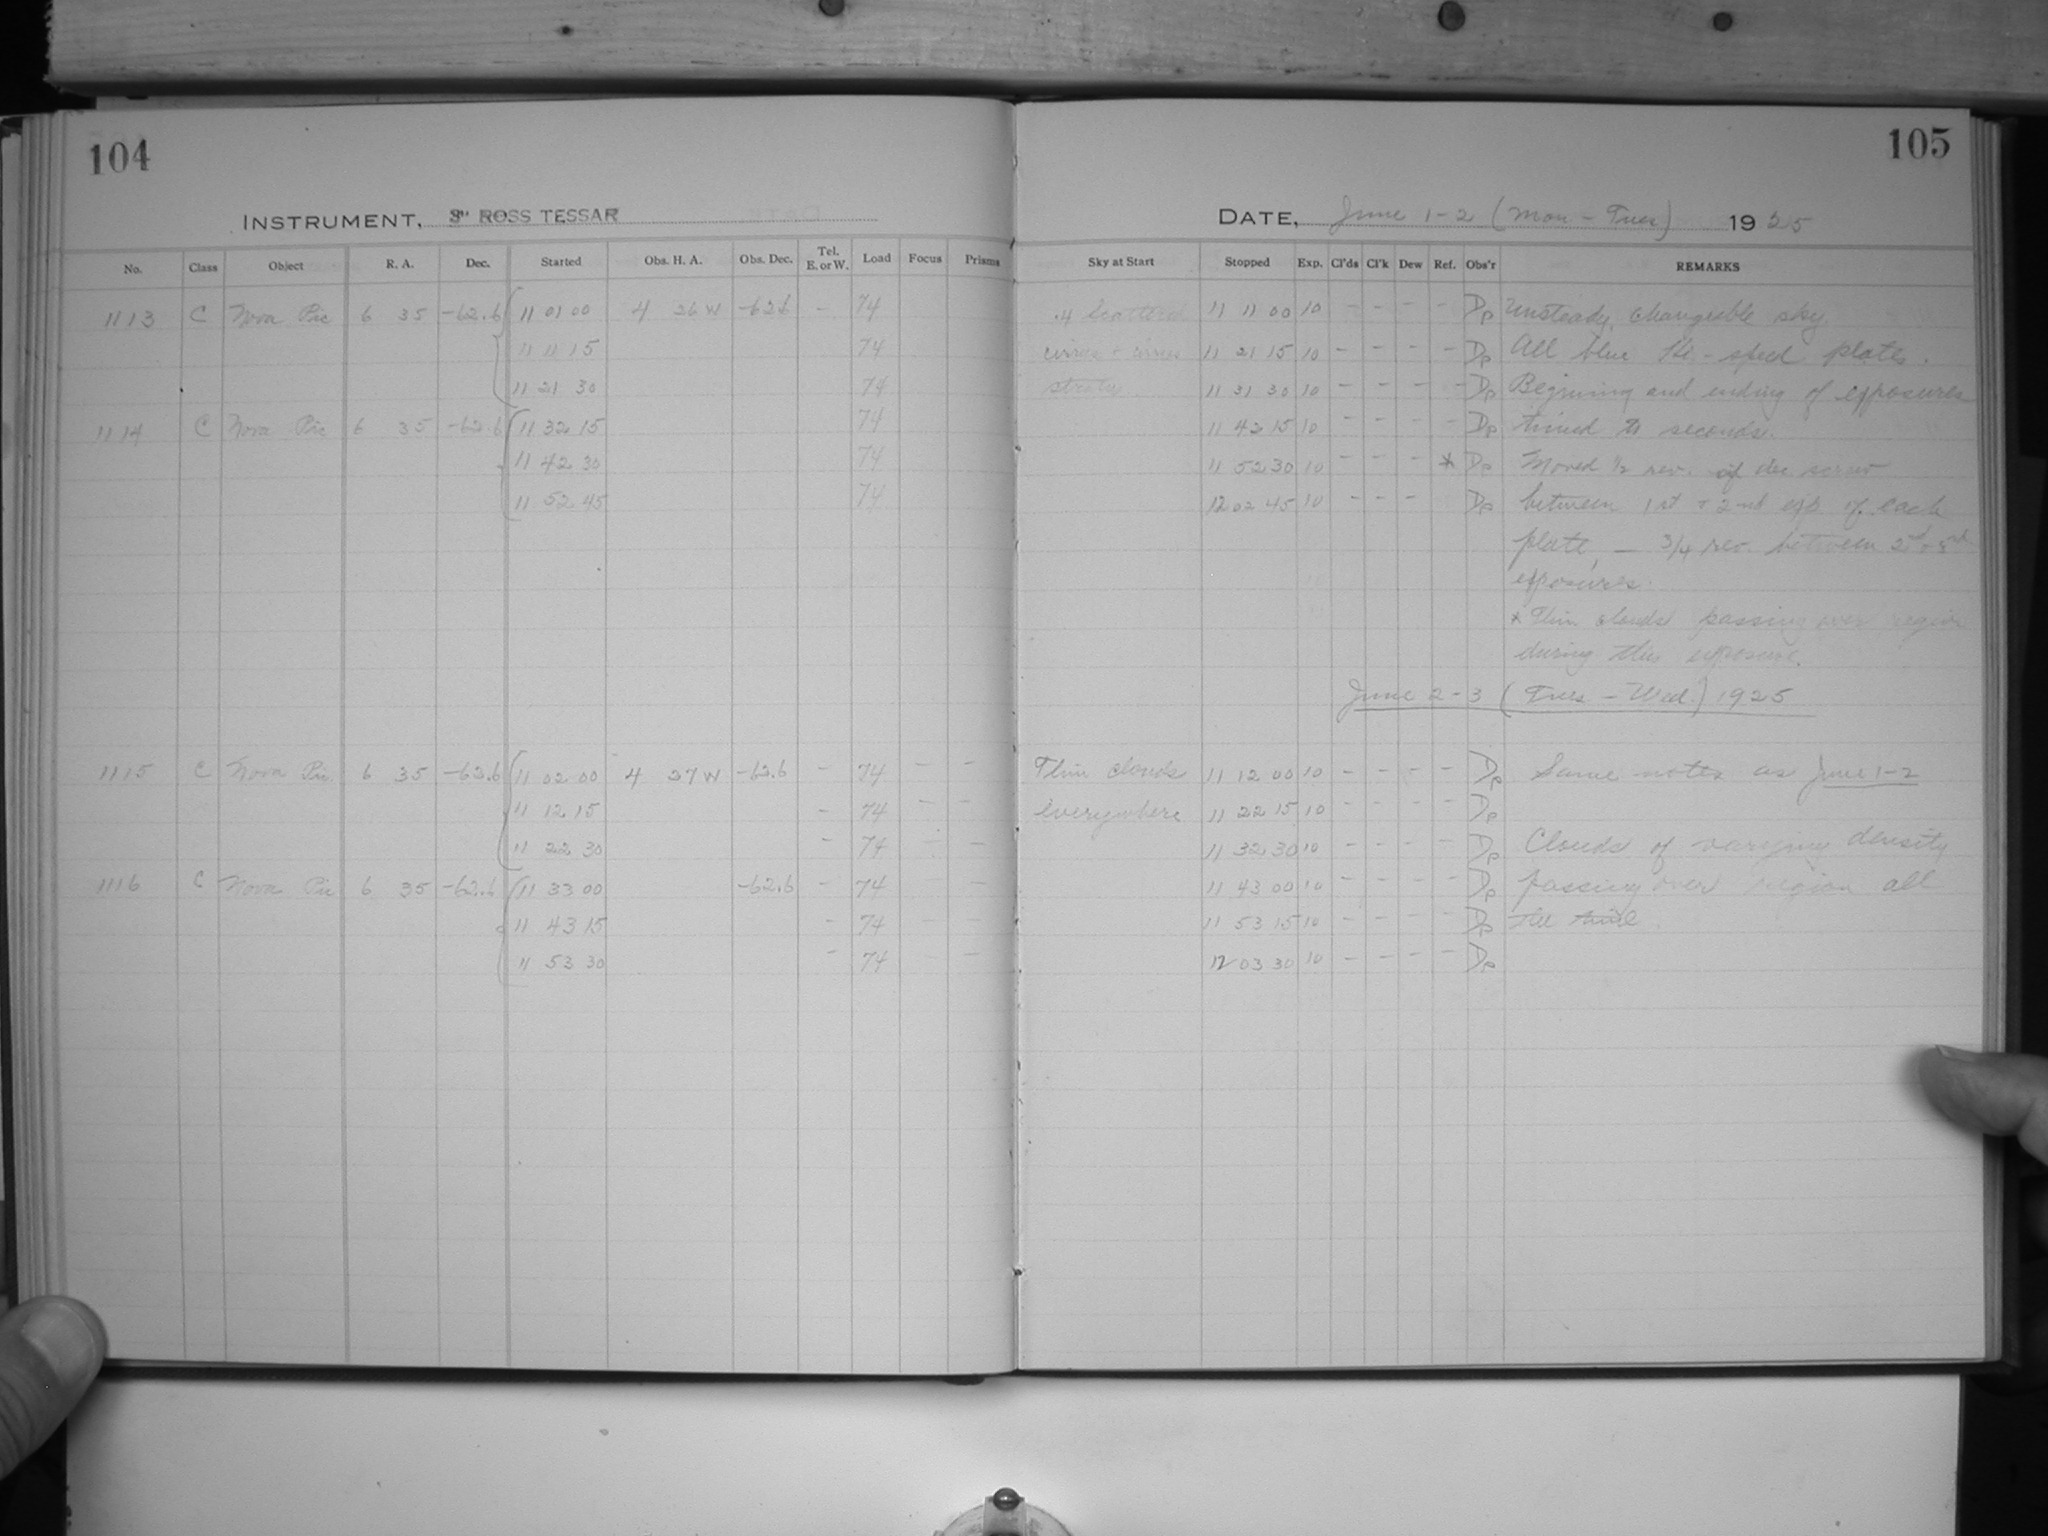 104
INSTRUMENT, 3" ROSS TESSAR
No. Class Object R. A. Dec. Started Obs. H. A. Obs. Dec. Tel. E. or W. Load Focus Prisms
1113 C Nova Pic 6 35 -62.6 11 01 00 4 26 W -62.6 - 74
11 11 15 74
11 21 30 74
1114 C Nova Pic 6 35 -62.6 11 32 15 74
11 42 30 74
11 52 45 74
1115 C Nova Pic. 6 35 -62.6 11 02 00 4 27 W -62.6 - 74 - -
11 12 15 - 74 - -
11 22 30 - 74 - -
1116 C Nova Pic 6 35 -62.6 11 33 00 -62.6 - 74 - -
11 43 15 - 74 - -
11 53 30 - 74 - -
105
DATE, June 1-2 (Mon - Tues) 1925
Sky at Start Stopped Exp. Cl'ds Cl'k Dew Ref. Obs'r REMARKS
.4 Scattered 11 11 00 10 - - - - Dp Unsteady, changeable sky.
cirrus + cirrus 11 21 15 10 - - - - Dp All blue Hi-speed plates.
stratus 11 31 30 10 - - - - Dp Beginning and ending of exposures
11 42 15 10 - - - - Dp timed to seconds.
11 52 30 10 - - - * Dp Moved 1/2 rev. of dec screw
12 02 45 10 - - - Dp between 1st + 2nd exp. of each
plate, — 3/4 rev. between 2nd + 3rd
exposures.
* Thin clouds passing over region
during this exposure.
June 2-3 (Tues - Wed.) 1925
Thin clouds 11 12 00 10 - - - - Dp Same notes as June 1-2
everywhere 11 22 15 10 - - - - Dp
11 32 30 10 - - - - Dp Clouds of varying density
11 43 00 10 - - - - Dp passing over region all
11 53 15 10 - - - - Dp the time.
12 03 30 10 - - - - Dp